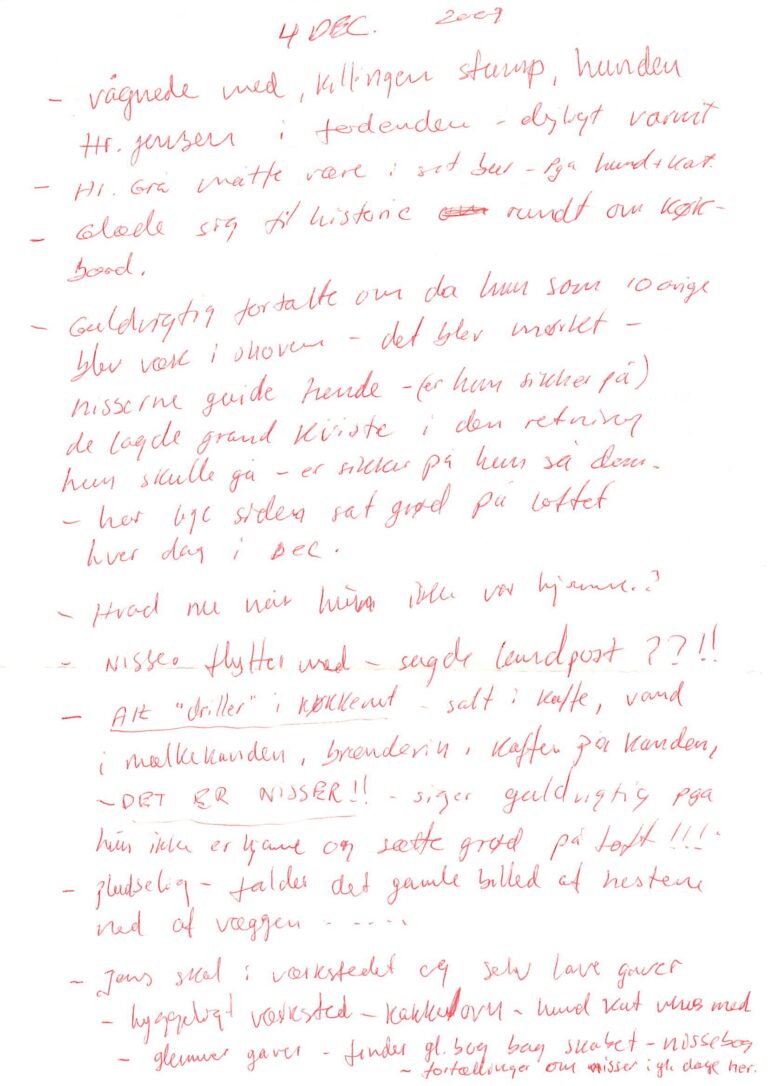 4 DEC. 2007
- vågnede med, killingen stump, hunden
Hr. Jensen i fodenden - dejligt varmt
- Hr. Grå måtte være i sit bur - pga hund + kat.
- Glæde sig til historie rundt om køk-
bord.
- Guldvigtig fortalte om da hun som 10 årige
blev væk i skoven - det blev mørkt -
nisserne guide hende - (er hun sikker på)
de lagde grand kviste i den retning
hun skulle gå - er sikker på hun så dem.
- har lige siden sat grød på loftet
hver dag i DEC.
- Hvad nu når hun ikke var hjemme..?
- NISSEN flytter med - sagde landpost ??!!
- Alt "driller" i køkkenet - salt i kaffe, vand
i mælkekanden, kaffen på kanden,
- DET ER NISSER!! - siger guldvigtig pga
hun ikke er hjeme og sætte grød på loft !!!
- pludselig - falder det gamle billed af hestene
ned af væggen - - - - -
- Jens skal i værkstedet og selv lave gaver
- hyggeligt værksted - kakkelovn - hund kat med
- glemmer gaver - finder gl. bog bag skabet - nissebog
- fortællinger om nisser i gl. dage her.